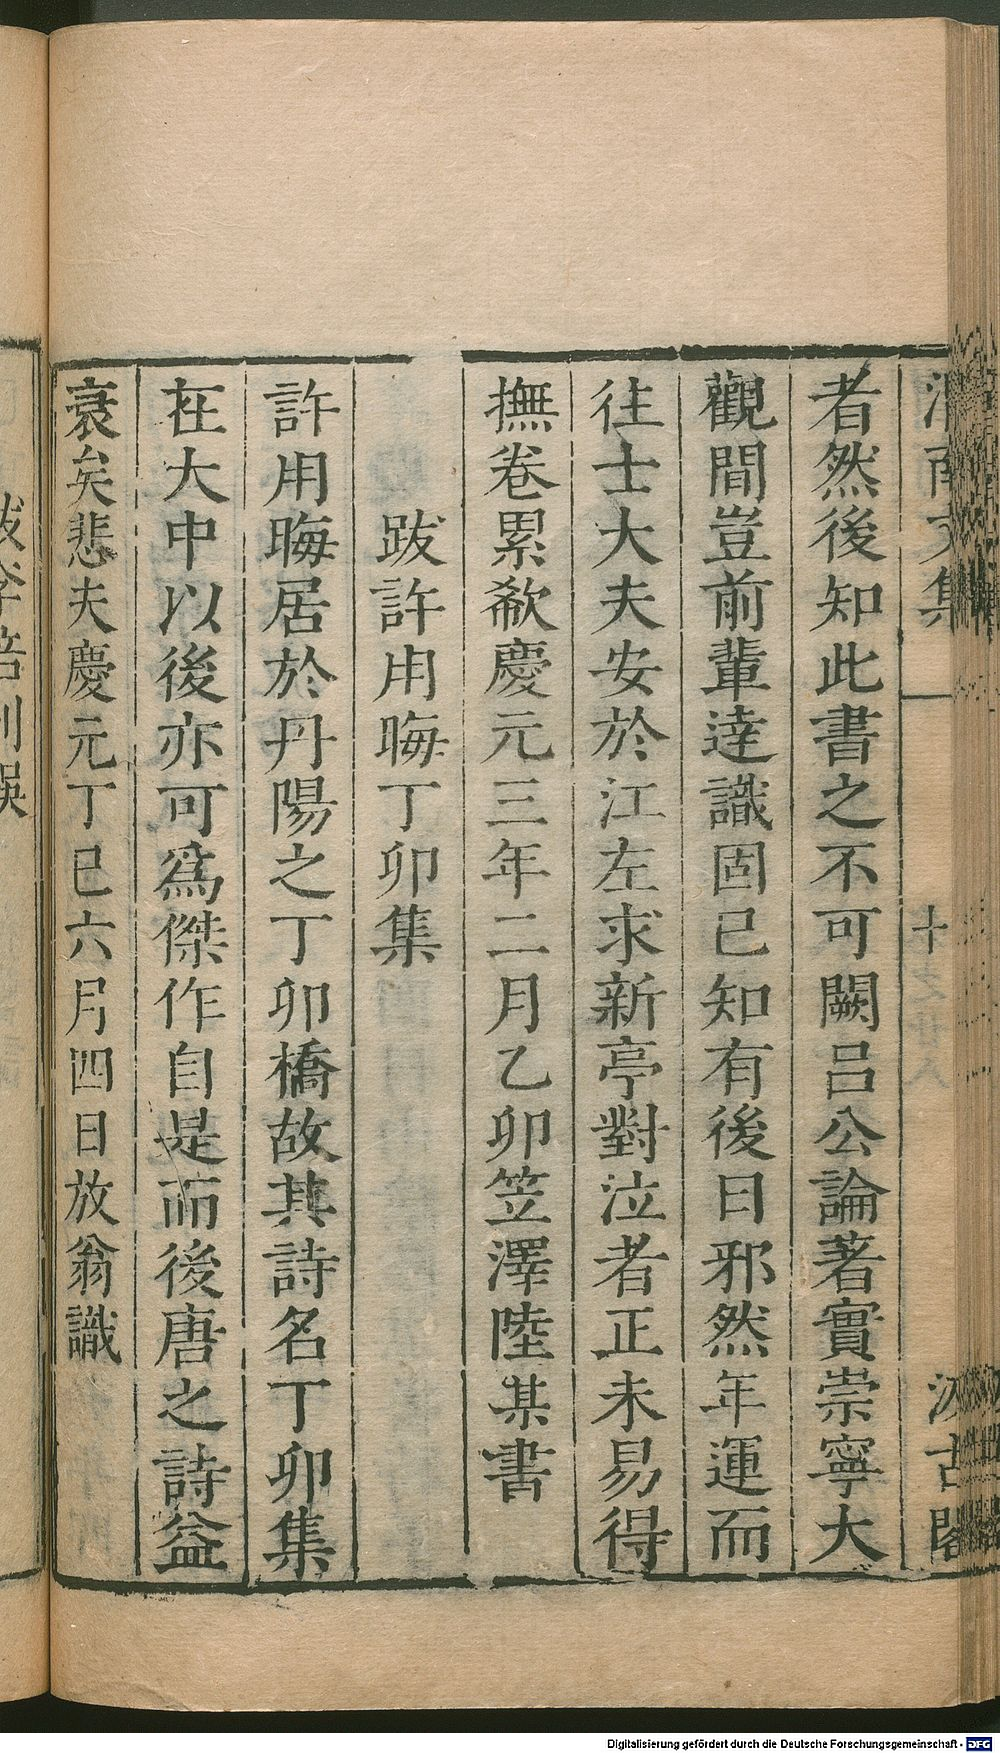 渭南文集
十
汲古閣
者然後知此書之不可闕呂公論著實崇寧大
觀間豈前輩達識固已知有後日邪然年運而
往士大夫安於江左求新亭對泣者正未易得
撫卷累欷慶元三年二月乙卯笠澤陸某書
跋許用晦丁卯集
許用晦居於丹陽之丁卯橋故其詩名丁卯集
在大中以後亦可爲傑作自是而後唐之詩益
衰矣悲夫慶元丁巳六月四日放翁識
Digitalisierung gefördert durch die Deutsche Forschungsgemeinschaft - DFG